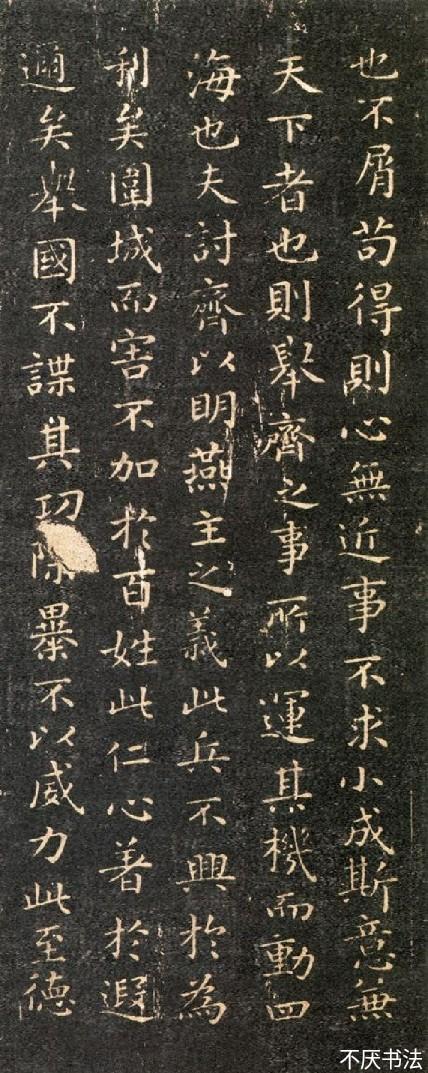 也不屑苟得則心無近事不求小成斯意兼
天下者也則舉齊之事所以運其機而動四
海也夫討齊以明燕主之義此兵不興於為
利矣圍城而害不加於百姓此仁心著於遐
邇矣舉國不謀其功除暴不以威力此至德
不厌书法